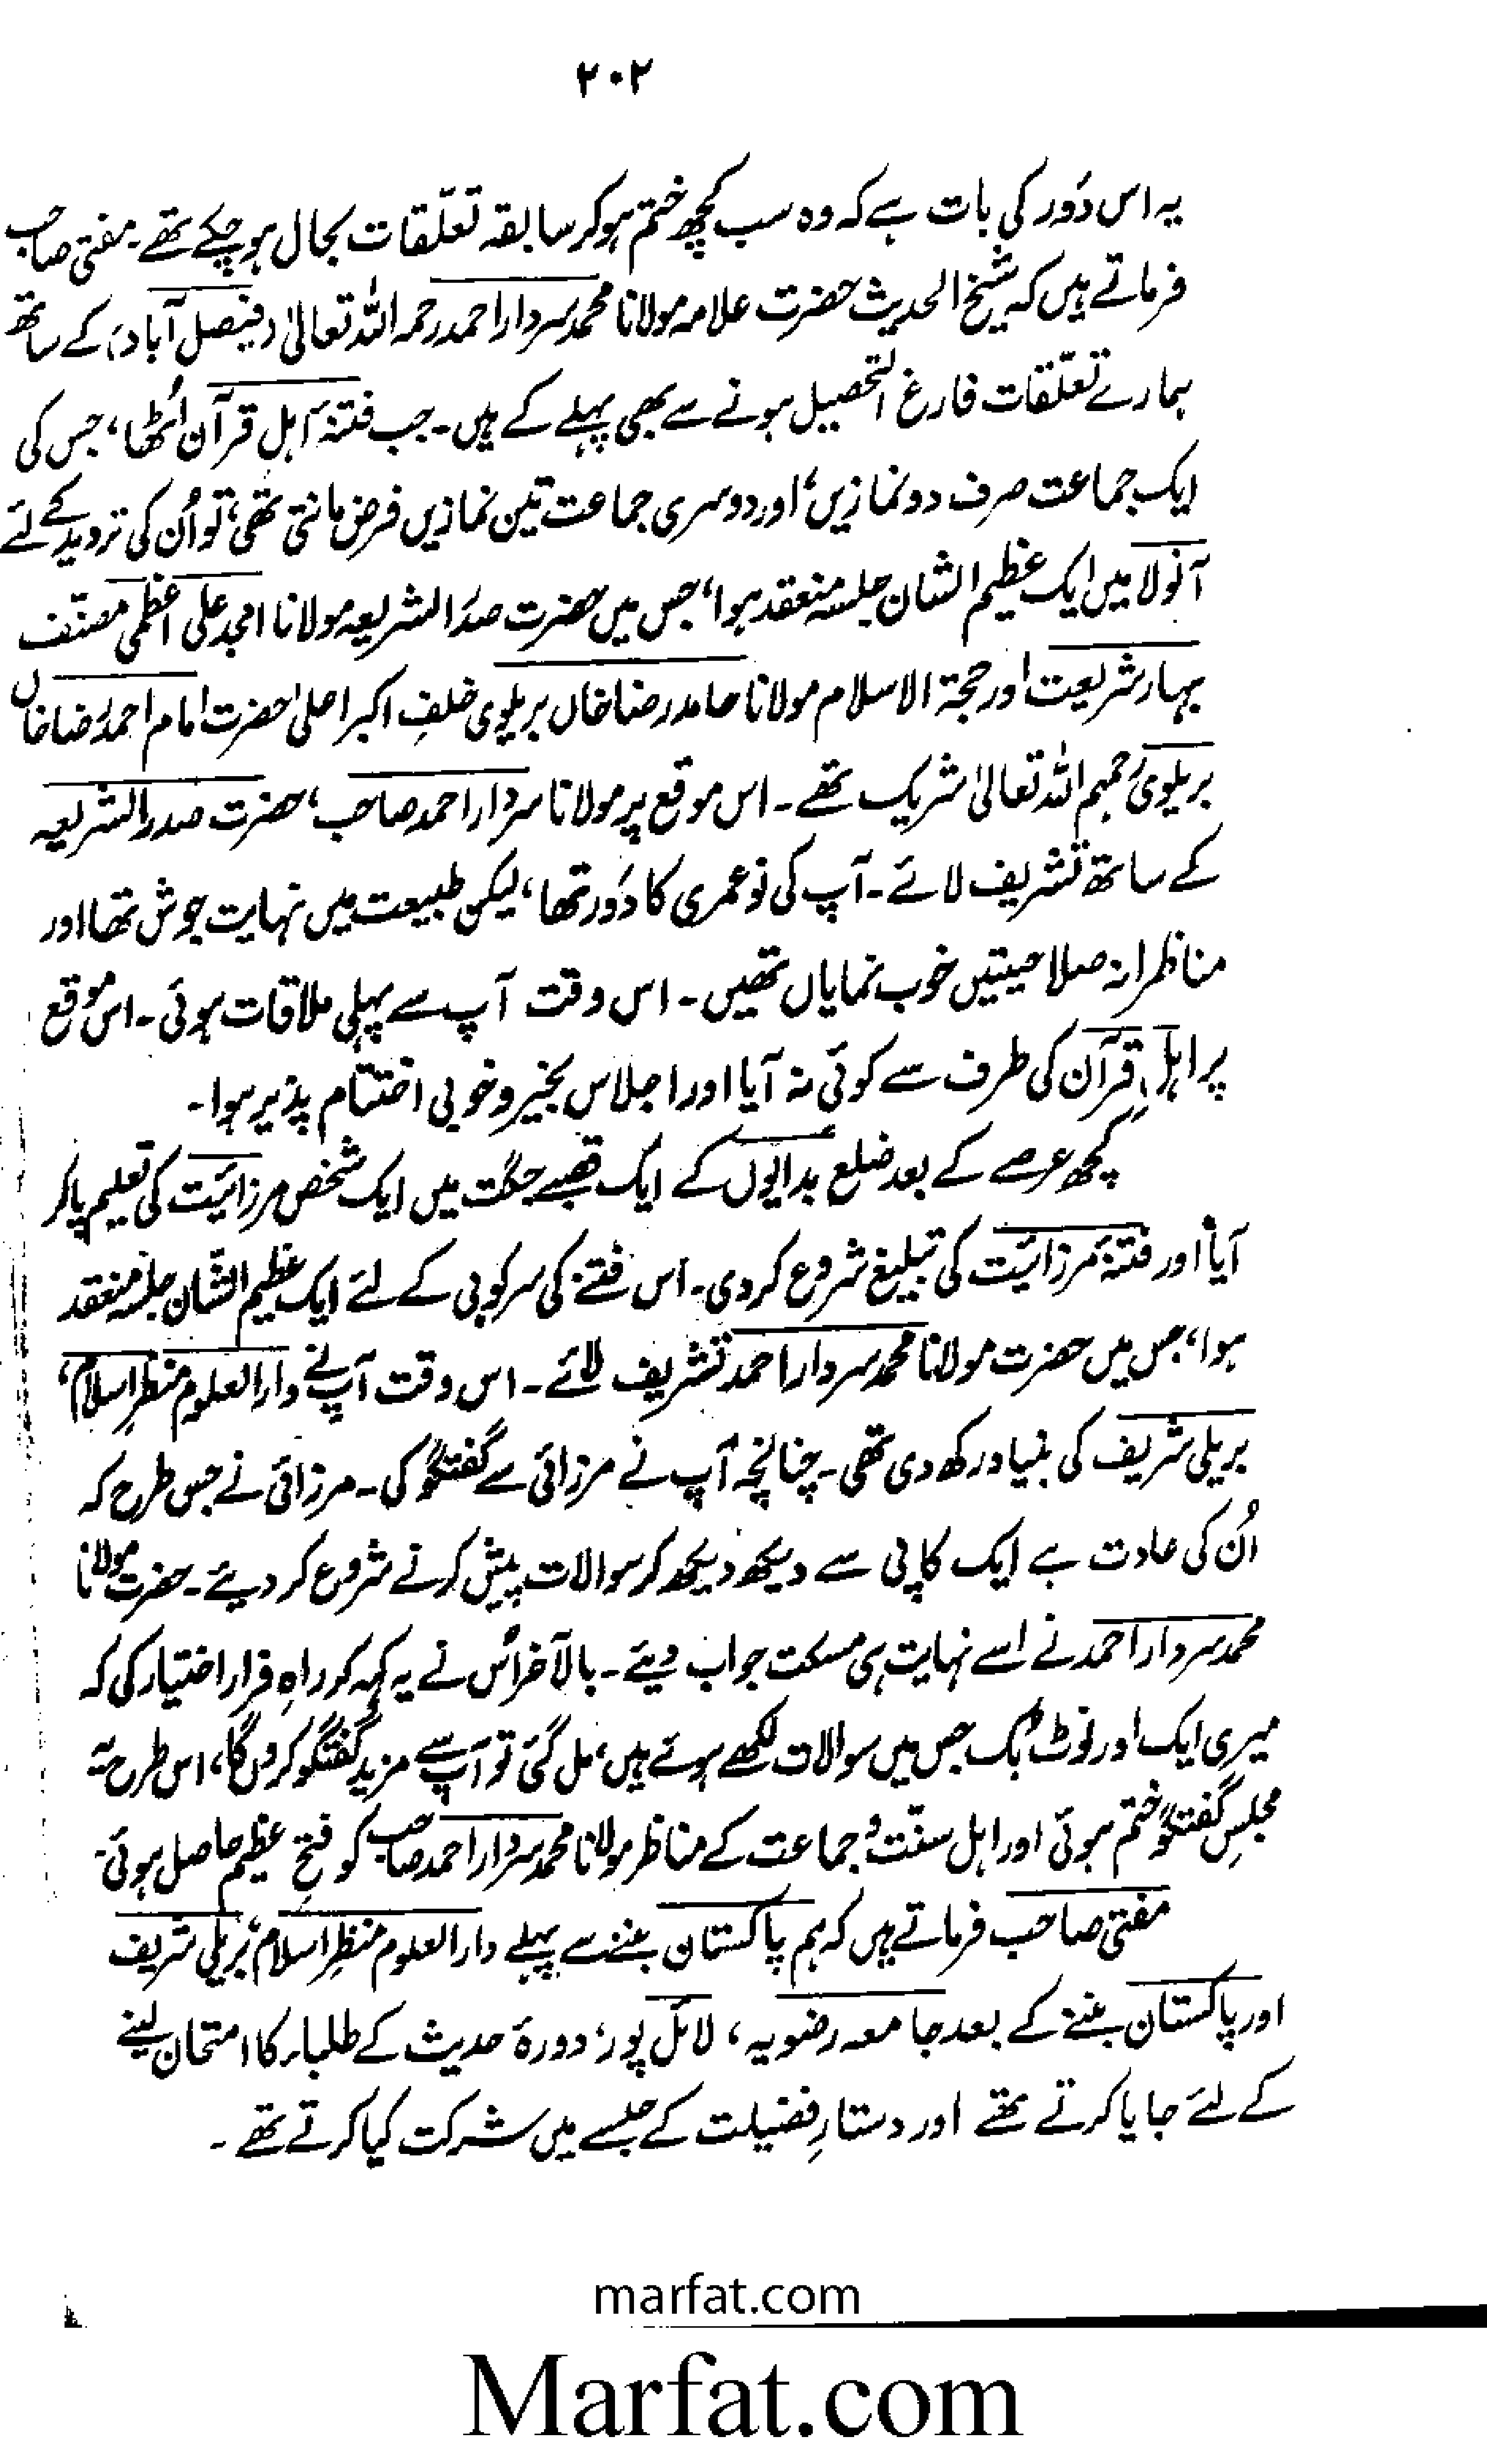 ۲۰۲
یہ اس دَور کی بات ہے کہ وہ سب کچھ ختم ہو کر سابقہ تعلّقات بحال ہو چکے تھے۔ مفتی صاحب
فرماتے ہیں کہ شیخ الحدیث حضرت علامہ مولانا محمد سردار احمد رحمہ اللہ تعالیٰ (فیصل آباد) کے ساتھ
ہمارے تعلّقات فارغ التحصیل ہونے سے بھی پہلے کے ہیں۔ جب فتنۂ اہلِ قرآن اُٹھا، جس کی
ایک جماعت صرف دو نمازیں، اور دوسری جماعت تین نمازیں فرض مانتی تھی، تو اُن کی تردید کے لئے
آنولا میں ایک عظیم الشان جلسہ منعقد ہوا، جس میں حضرت صدر الشریعہ مولانا امجد علی اعظمی مصنّف
بہارِ شریعت اور حجۃ الاسلام مولانا حامد رضا خاں بریلوی خلفِ اکبر اعلیٰ حضرت امام احمد رضا خاں
بریلوی رحمہم اللہ تعالیٰ شریک تھے۔ اس موقع پر مولانا سردار احمد صاحب، حضرت صدر الشریعہ
کے ساتھ تشریف لائے۔ آپ کی نو عمری کا دَور تھا، لیکن طبیعت میں نہایت جوش تھا اور
مناظرانہ صلاحیتیں خوب نمایاں تھیں۔ اس وقت آپ سے پہلی ملاقات ہوئی۔ اس موقع
پر اہلِ قرآن کی طرف سے کوئی نہ آیا اور اجلاس بخیر و خوبی اختتام پذیر ہوا۔
کچھ عرصے کے بعد ضلع بدایوں کے ایک قصبے جگت میں ایک شخص مرزائیت کی تعلیم پا کر
آیا اور فتنۂ مرزائیت کی تبلیغ شروع کر دی۔ اس فتنے کی سرکوبی کے لئے ایک عظیم الشّان جلسہ منعقد
ہوا، جس میں حضرت مولانا محمد سردار احمد تشریف لائے۔ اس وقت آپ نے دار العلوم منظرِ اسلام،
بریلی شریف کی بنیاد رکھ دی تھی۔ چنانچہ آپ نے مرزائی سے گفتگو کی۔ مرزائی نے جس طرح کہ
اُن کی عادت ہے ایک کاپی سے دیکھ دیکھ کر سوالات پیش کرنے شروع کر دیے۔ حضرت مولانا
محمد سردار احمد نے اسے نہایت ہی مسکت جواب دیئے۔ بالآخر اُس نے یہ کہہ کر راہِ فرار اختیار کی کہ
میری ایک اور نوٹ بُک جس میں سوالات لکھے ہوئے ہیں، مل گئی تو آپ سے مزید گفتگو کروں گا، اس طرح یہ
مجلسِ گفتگو ختم ہوئی اور اہل سنّت و جماعت کے مناظر مولانا محمد سردار احمد صاحب کو فتحِ عظیم حاصل ہوئی۔
مفتی صاحب فرماتے ہیں کہ ہم پاکستان بننے سے پہلے دار العلوم منظرِ اسلام، بریلی شریف
اور پاکستان بننے کے بعد جامعہ رضویہ، لائل پور، دورۂ حدیث کے طلباء کا امتحان لینے
کے لئے جایا کرتے تھے اور دستارِ فضیلت کے جلسے میں شرکت کیا کرتے تھے۔
marfat.com
Marfat.com